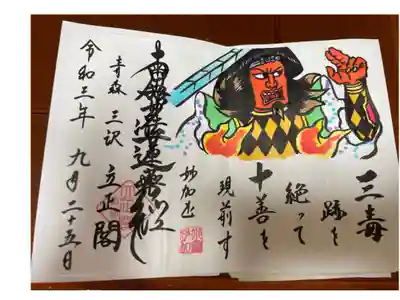 三毒
跡を
絶って
十善を
現前す
妙加也
南無妙法蓮華経
立正閣
青森 三沢
令和三年 九月二十五日